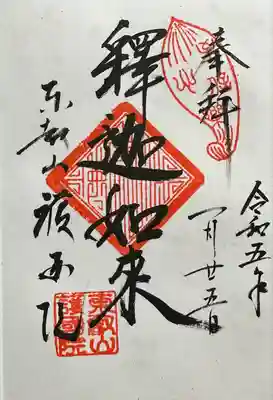 奉拝
令和五年
一月廿五日
釋迦如來
東叡山護国院
東叡山
護國院